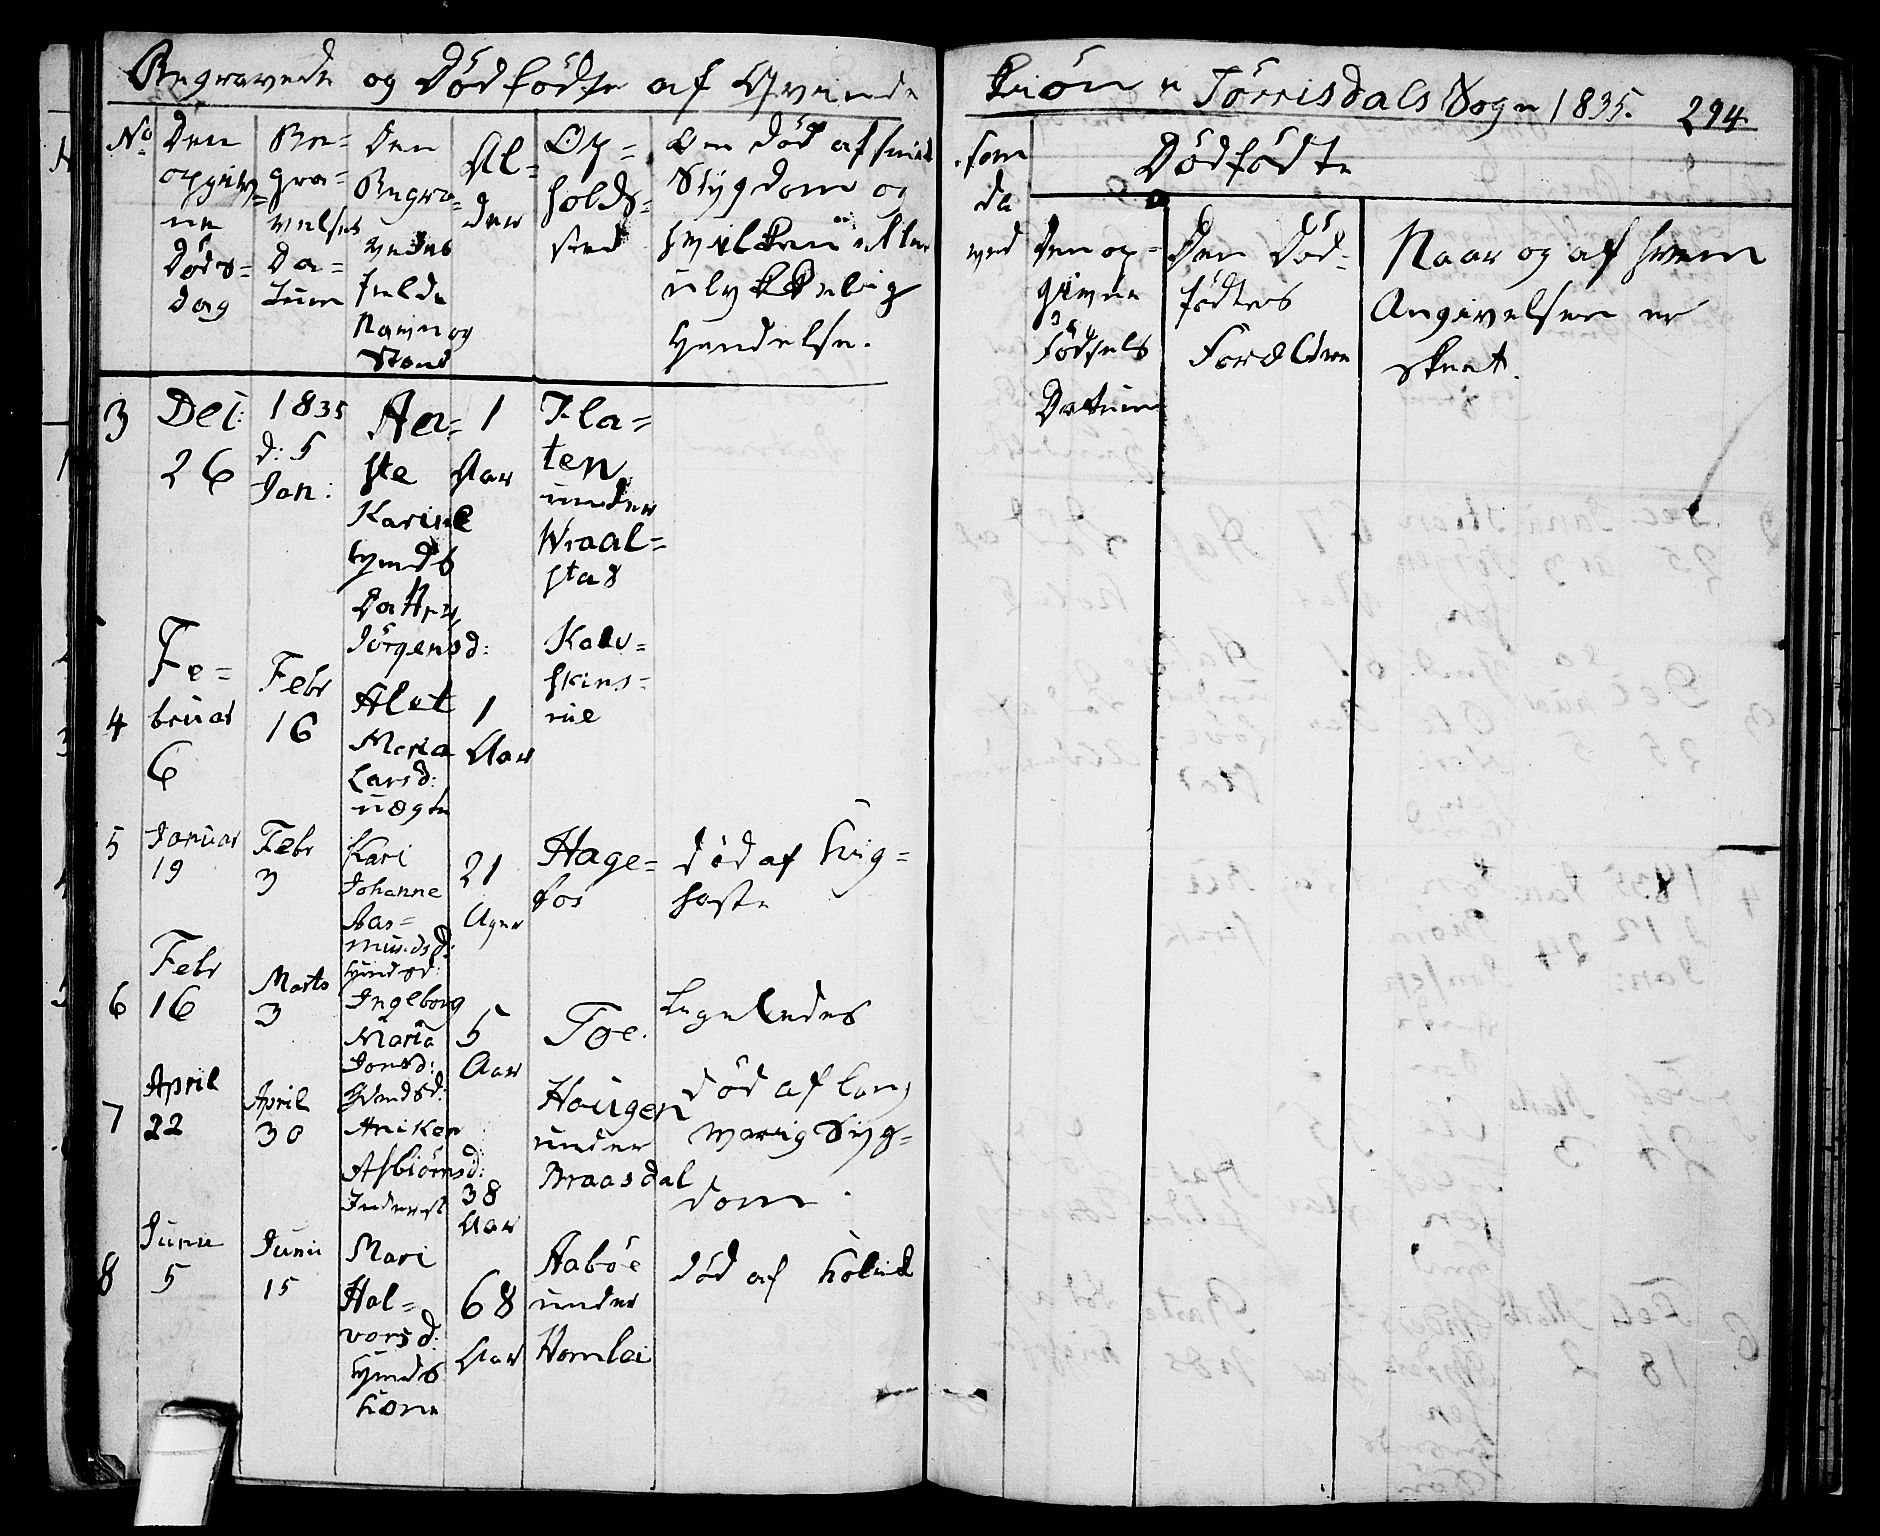 Begravede og Dödfödte af Qvinde
kiön i Törrisdals Sogn 1835. 294
No
Den
opgiv=
ne
Döds=
dag
Be=
gra=
velses
Da=
tum
Den
Begra=
vedes
fulde
Navn og
Stand
Al=
der
Op=
holds=
sted
Om död af smit
Sygdom og
hvilken eller
ulykkelig
Hendelse.
som
da
ved
Dödfödte
Den op=
givne
Födsels
Datum
Den Död=
födtes
Forældre
Naar og af hvem
Angivelsen er
skeet.
3
Dec:
26
1835
d: 5
Jan:
Aa=
ste
Karine
Gmds
Datter,
Jörgensd:
1
Aar
Fla=
ten
under
Wraal=
stad
4
Fe=
bruar
6
Febr
16
Alet
Maria
Larsd:
uægte
1
Aar
Kalv=
skins=
rüe
5
Januar
19
Febr
3
Kari
Johanne
Aas=
mundsd:
Gmdsd:
21
Uger
Hage=
fos
död af kig=
hoste
6
Febr
16
Marts
3
Ingeborg
Maria
Jonsd:
Gmdsd:
5
Aar
Toe.
Ligeledes
7
April
22
April
30
Aniken
Asbiörnsd:
Inderst
38
Aar
Haugen
under
Braasdal
död af lang
varig Syg=
dom.
8
Junii
5
Junii
15
Mari
Hal=
vorsd:
Gmds
kone
68
Aar
Aaböe
under
Homlei
död af